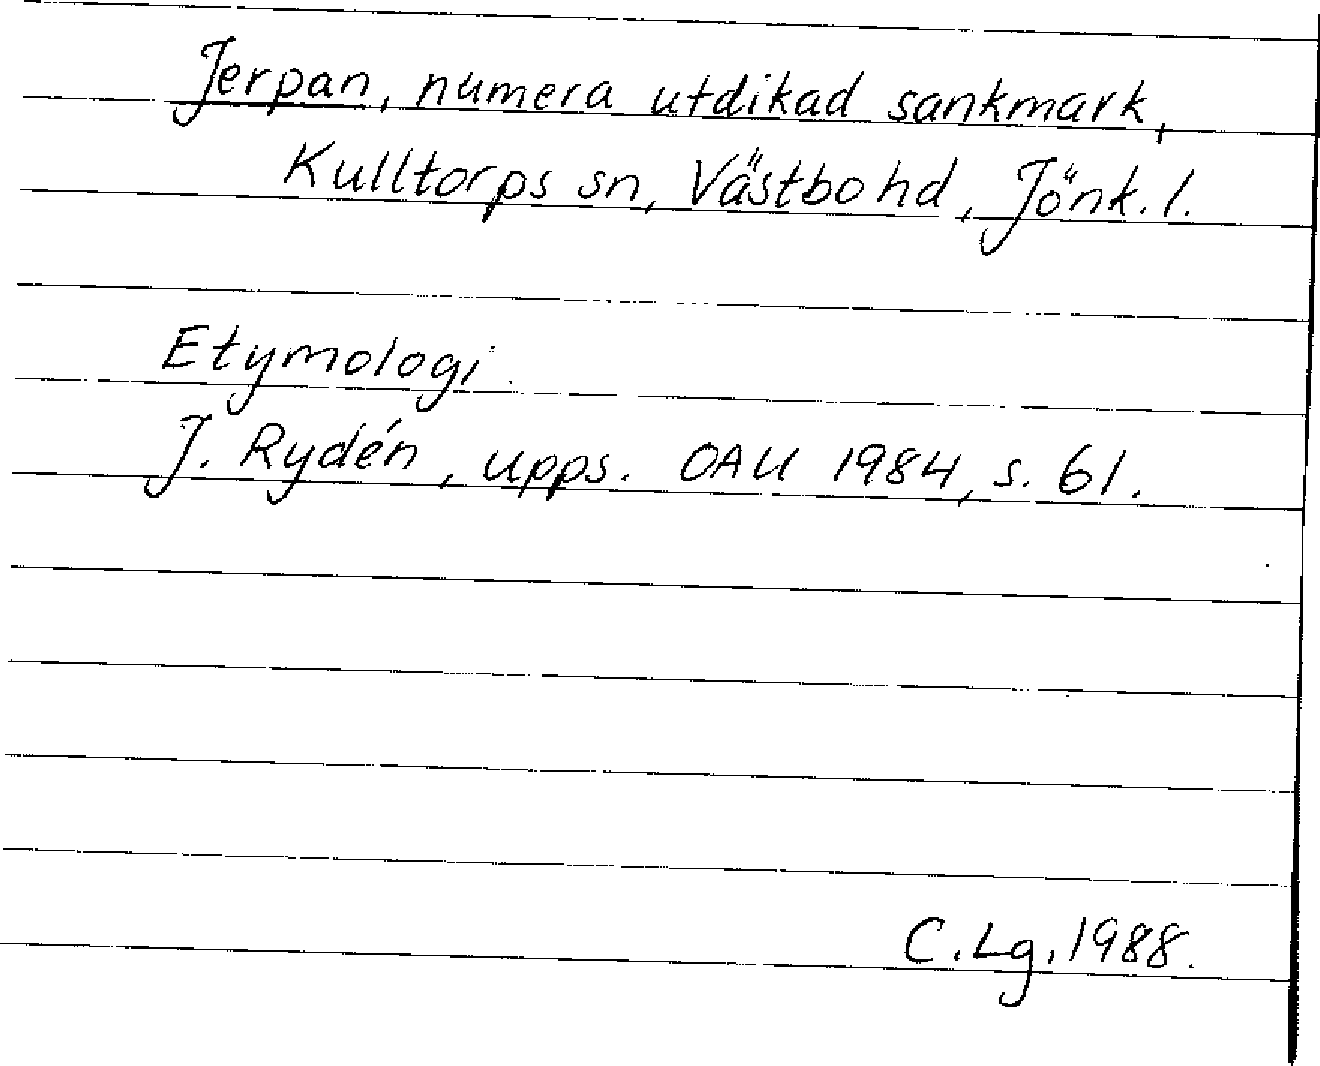 Jerpan, numera utdikad sankmark,
Kulltorps sn, Västbo hd, Jönk. l.
Etymologi.
J. Rydén, upps. OAU 1984, s. 61.
C. Lg. 1988.